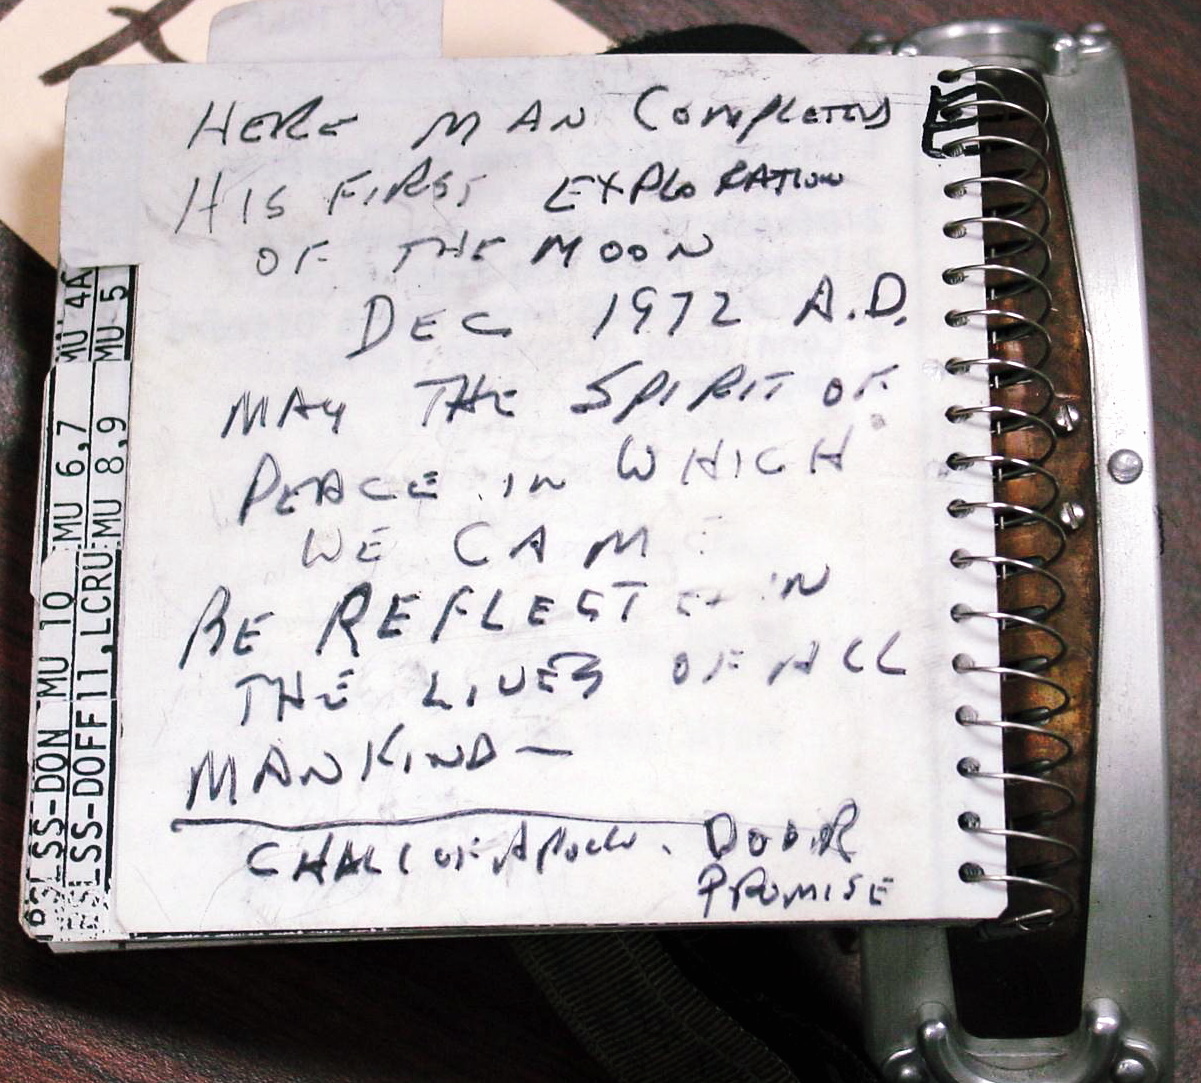 HERE MAN COMPLETED
HIS FIRST EXPLORATION
OF THE MOON
DEC 1972 A.D.
MAY THE SPIRIT OF
PEACE IN WHICH
WE CAME
BE REFLECTED IN
THE LIVES OF ALL
MANKIND —
CHALL OF APOLLO . DOOR
PROMISE
MU 4A
MU 5
MU 6,7
MU 8,9
MU 10
11,LCRU
LSS-DON
LSS-DOFF